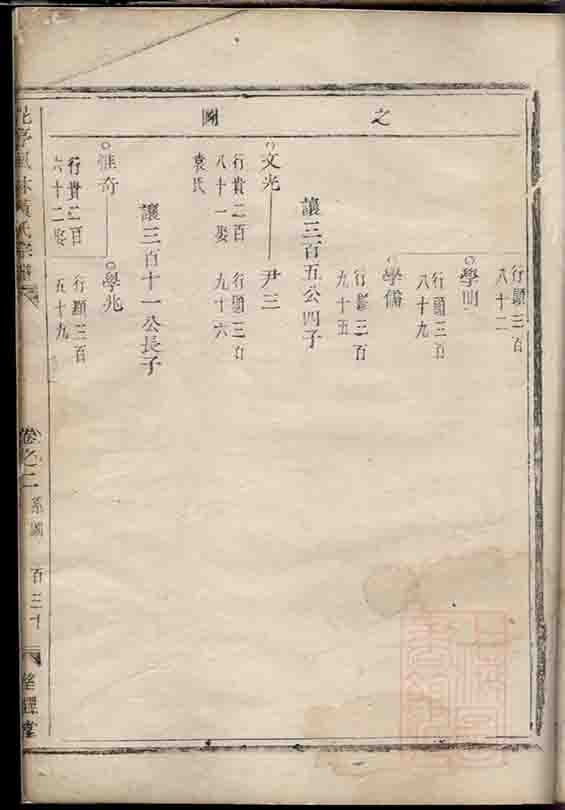 之圖
行顯三百
八十二
學山
行顯三百
八十九
學儒
行顯三百
九十五
讓三百五公四子
文光
尹三
行貴二百
八十一娶
袁氏
行顯三百
九十六
讓三百十一公長子
惟奇
學兆
行貴二百
六十二娶
行顯三百
五十九
黃氏宗譜
卷之二 系圖 百三十